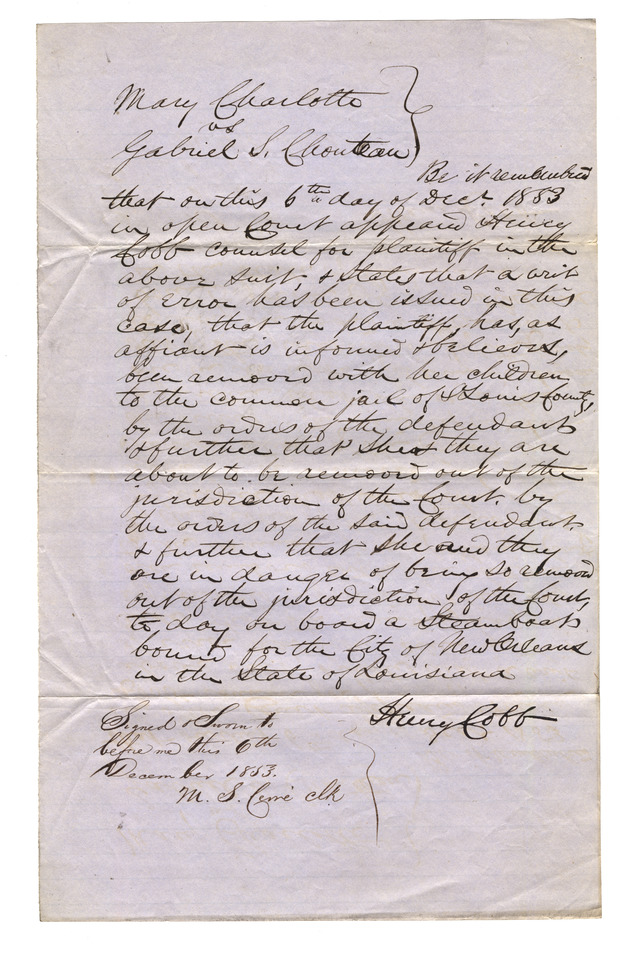 Mary Charlotte
vs
Gabriel S. Chouteau
Be it remembered
that on this 6th day of Decr. 1853
in open Court appeared Henry
Cobb counsel for plaintiff in the
above suit, & states that a writ
of Error has been issued in this
case, that the plaintiff, has, as
affiant is informed & believes,
been removed with her children
to the common jail of St Louis County,
by the orders of the defendant
& further that she & they are
about to be removed out of the
jurisdiction of the Court. by
the orders of the said defendant.
& further that she and they
are in danger of being so removed
out of the jurisdiction of the Court,
to day on board a Steamboat
bound for the City of New Orleans
in the State of Louisiana
Henry Cobb
Signed & Sworn to
before me this 6th
December 1853.
M. S. Cerré clk